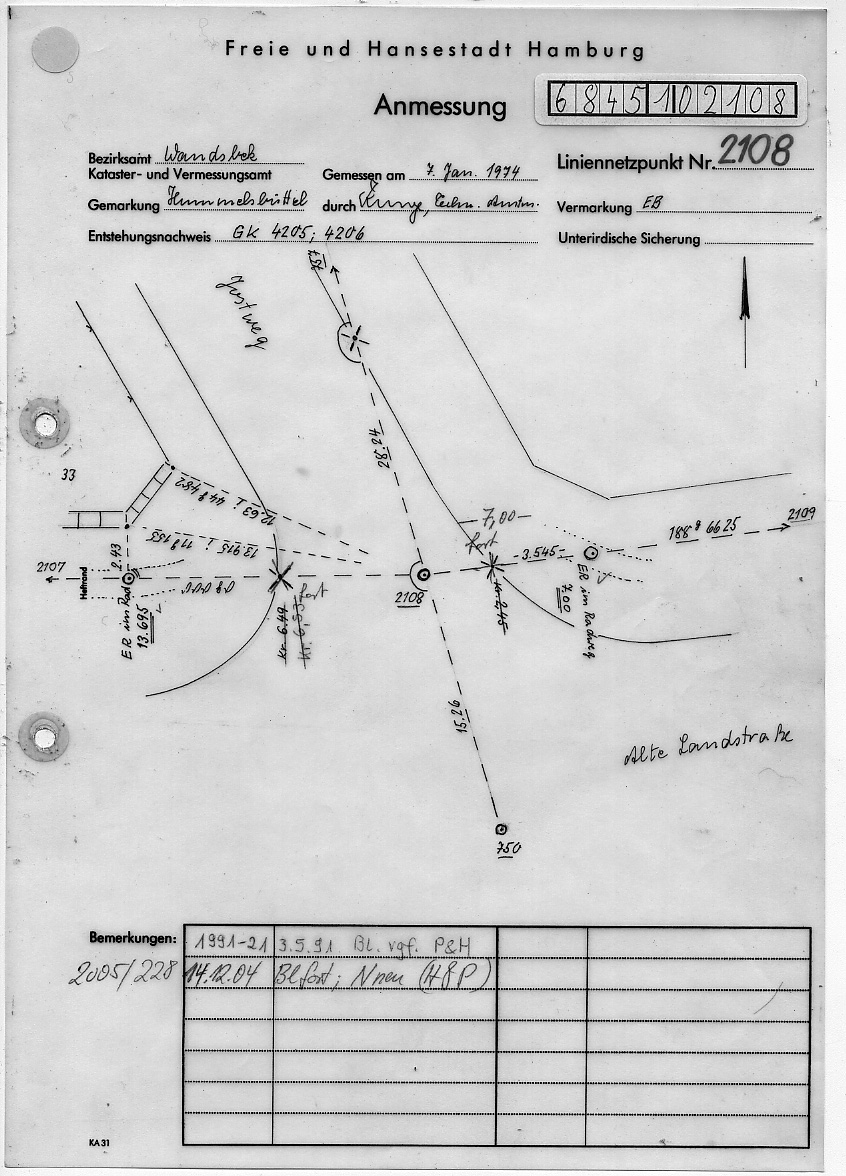 Freie und Hansestadt Hamburg
Anmessung
6845102108
Bezirksamt Wandsbek
Kataster- und Vermessungsamt
Gemessen am 7. Jan. 1974
Liniennetzpunkt Nr. 2108
Gemarkung Hummelsbüttel
durch
Vermarkung EB
Entstehungsnachweis GK 4205; 4206
Unterirdische Sicherung
28.24
33
12.63 ; 44g 482
7,00
fort
188g 6625
2109
13.915 ; 11g 153
3.545
2107
Heftrand
2.43
ER im Rad
13.695
0g 000
Kr. 6.49
Kr. 6,53
fort
2108
Kr. 2.45
7.00
ER im Radweg
15.26
Alte Landstraße
750
Bemerkungen:
1991-21 3.5.91 Bl. vgf. P&H
2005/228 14.12.04 Bl fort; N neu (H&P)
KA 31